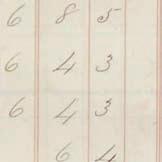 6 8 5
6 4 3
6 4 3
6 4